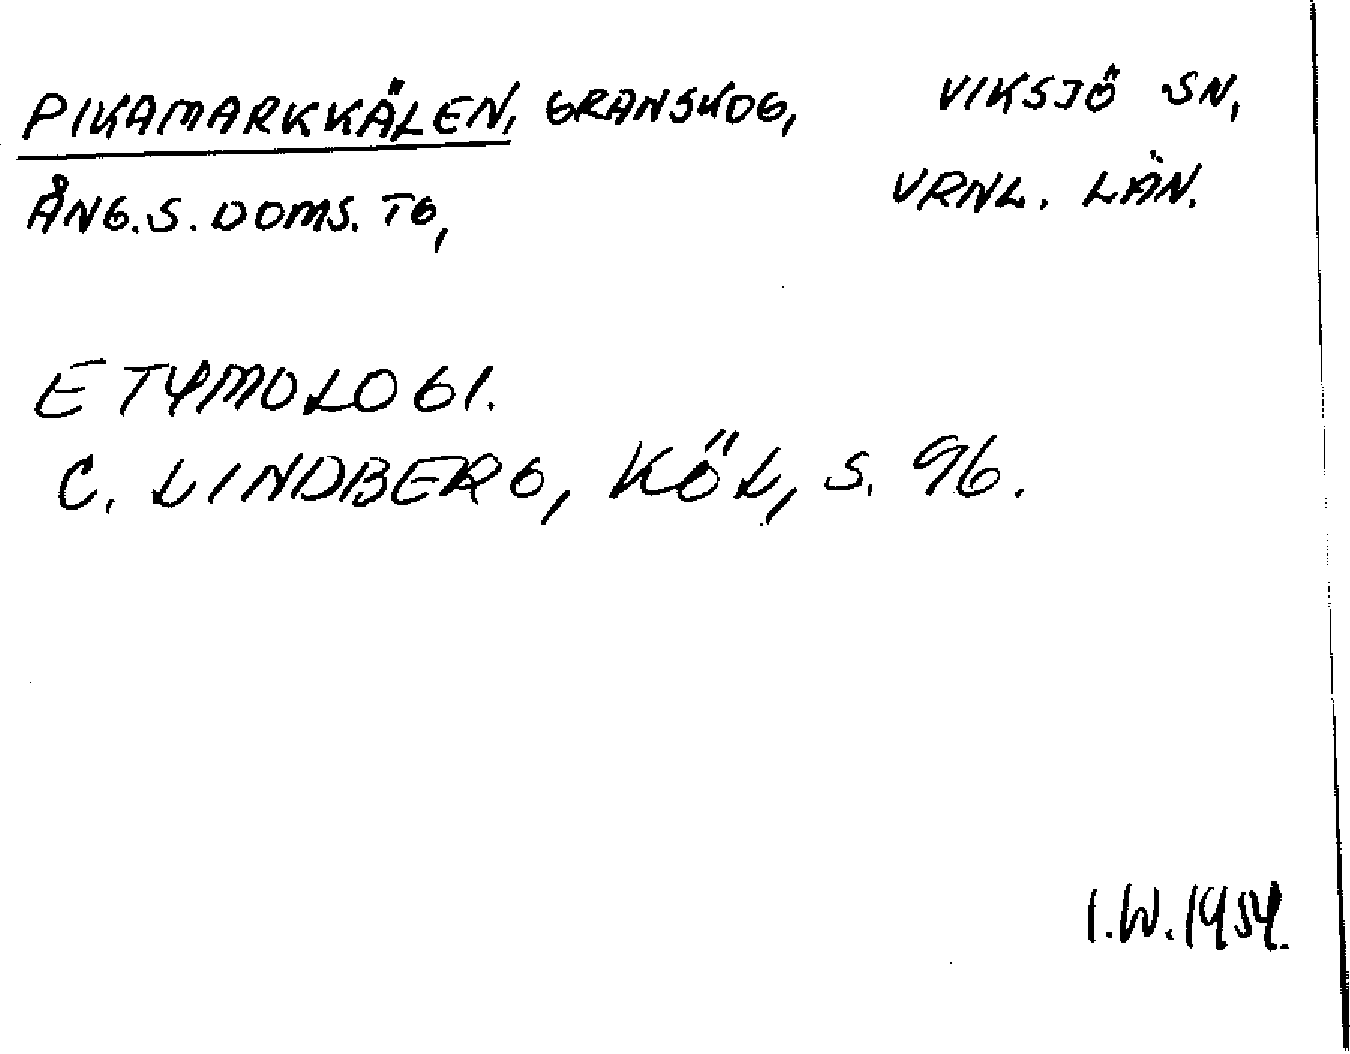 PIKAMARKKÄLEN, GRANSKOG, VIKSJÖ SN,
ÅNG. S. DOMS. TG, VRNL. LÄN.
ETYMOLOGI.
C. LINDBERG, KÖL, S. 96.
I.W. 1954.